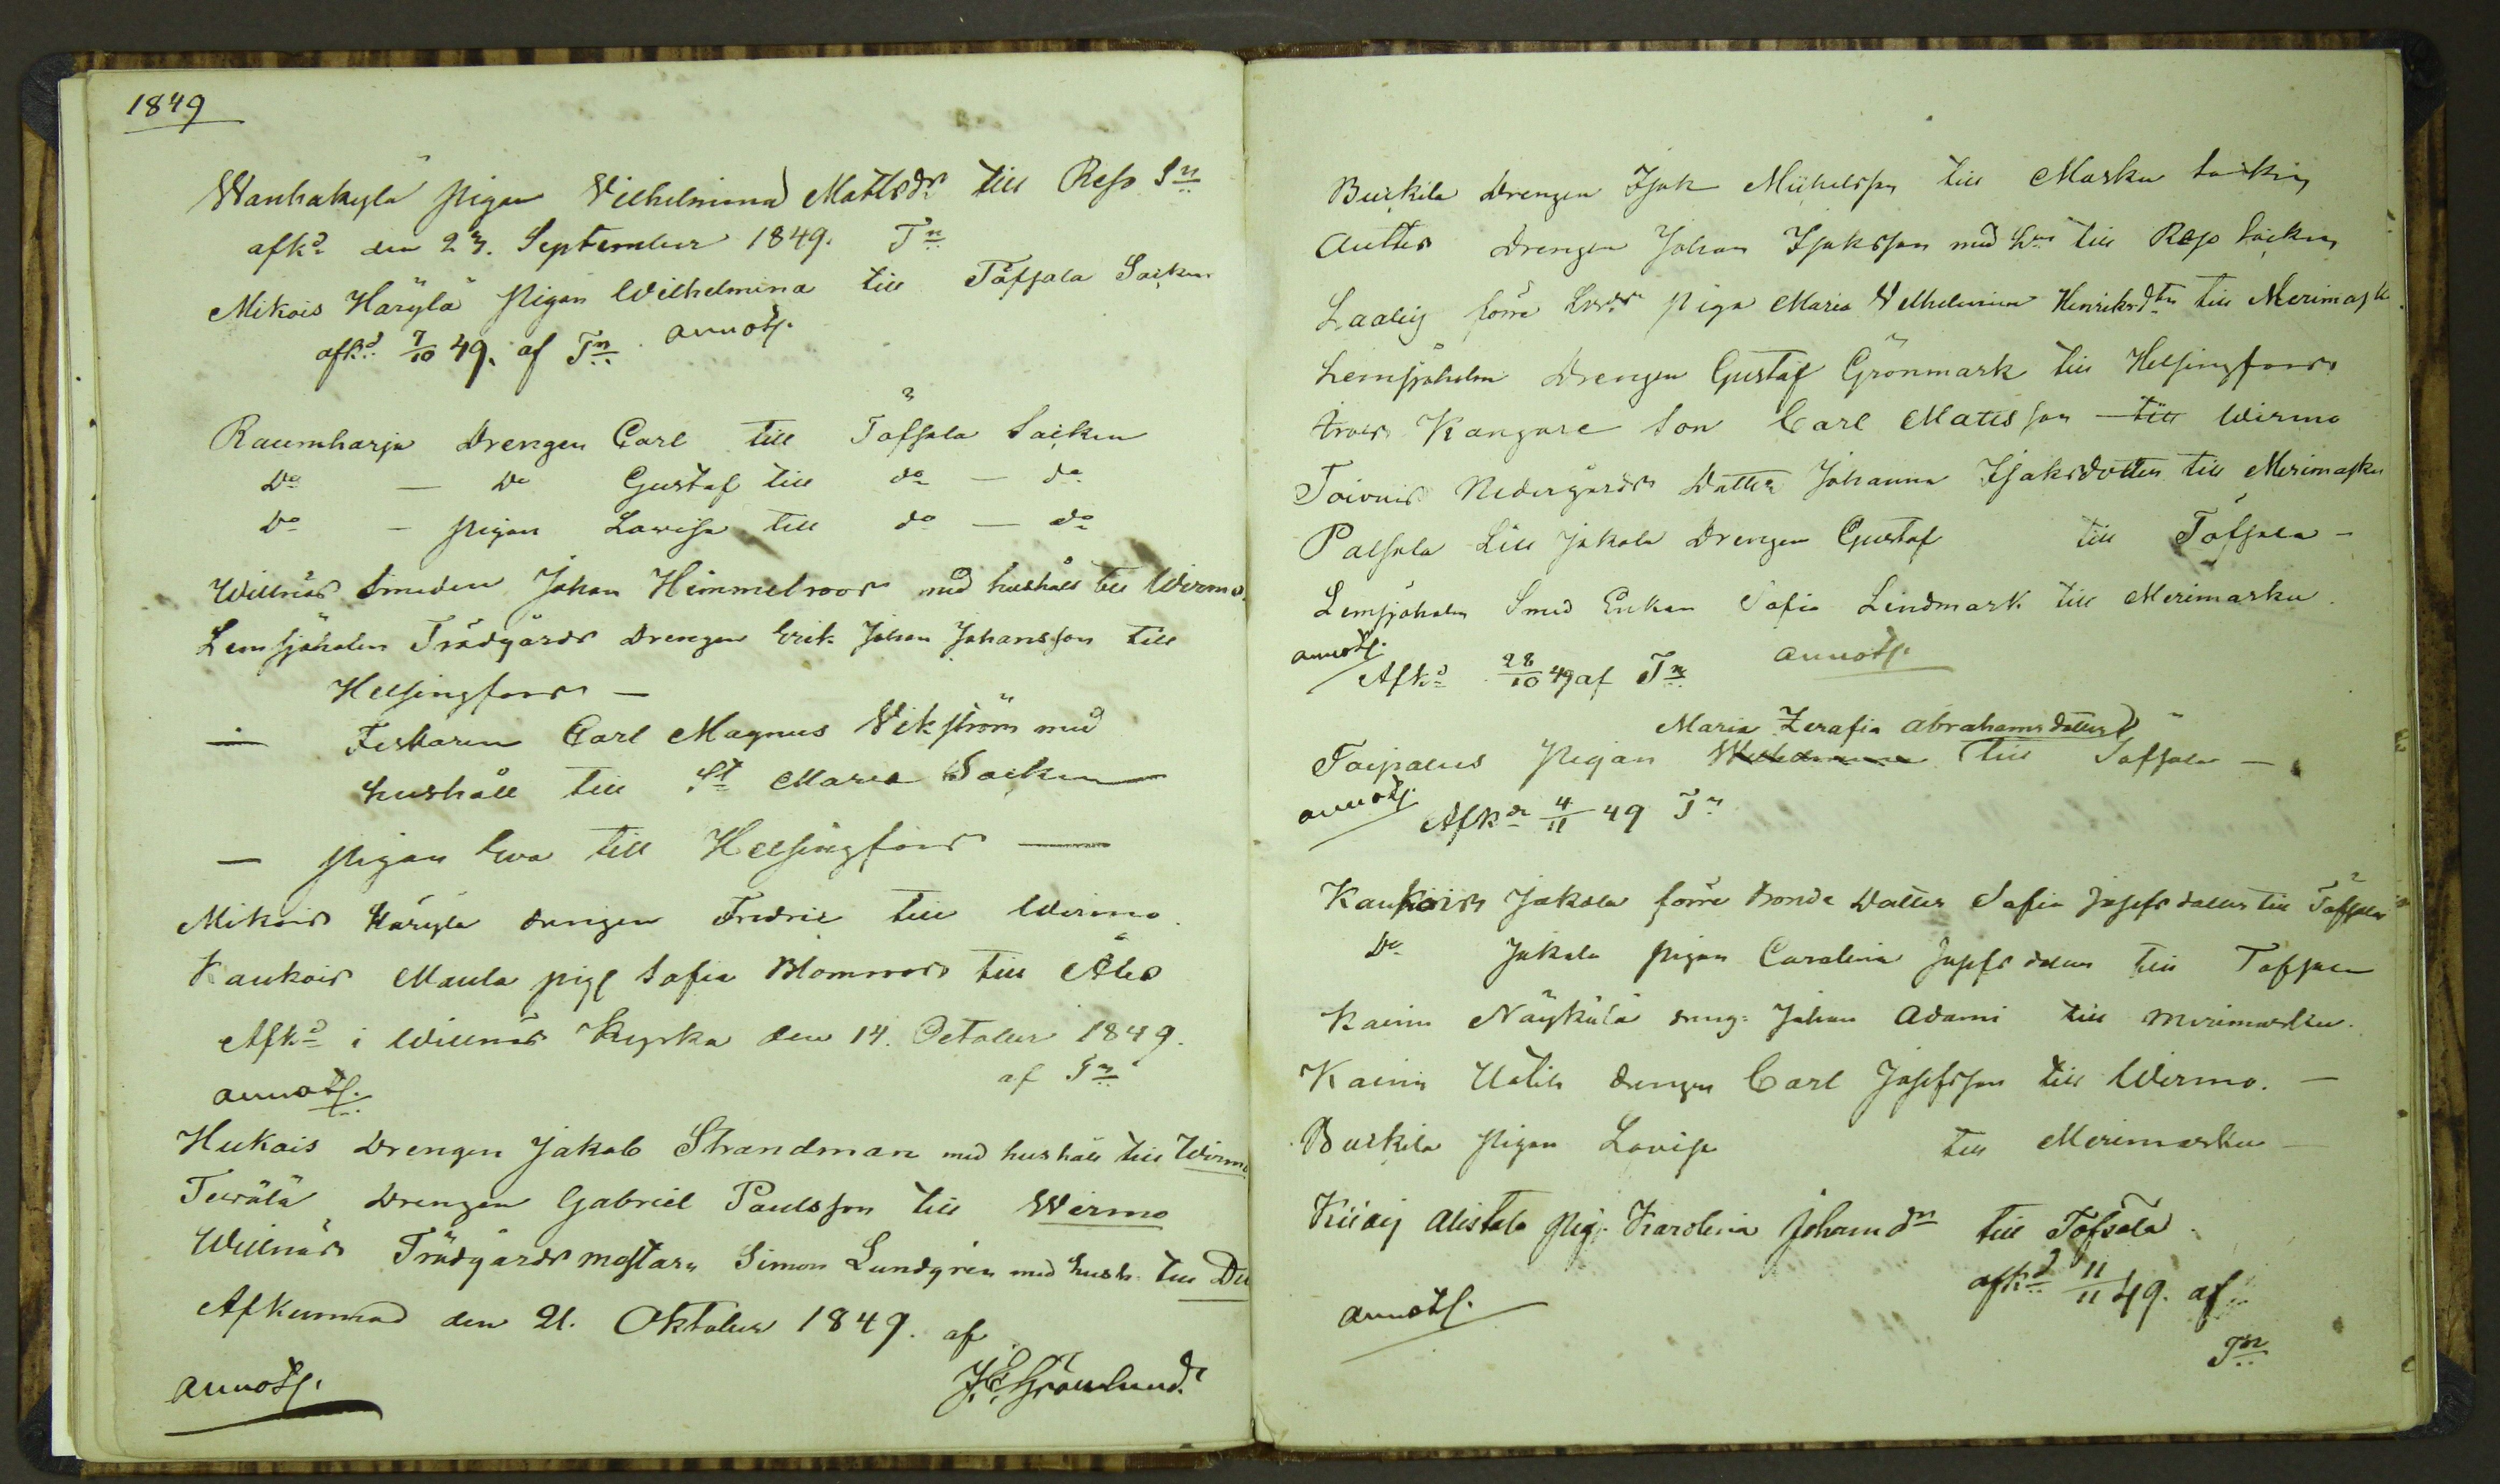 1849
Wanhakylä Pigan Vilhelmina Matlsdr till Reso Sn
afkd den 23. September 1849. Tn
Mikois Häryla Pigan Wilhelmina till Töfsala Sacken
afkd 7/10 49. af Tn. annots.
Raumharju Drengen Carl till Töfsala Sacken
Do — Do Gustaf till do — do
Do — Pigan Lovisa till do — do
Willnäs Smeden Johan Himmelroos med hushåll till Wirmo.
Lemsjöholm Trädgårds Drengen Erik Johan Johansson till
Helsingfors —
— Fiskaren Carl Magnus Vikström med
hushåll till St Marie Socken
— Pigan Eva till Helsingfors —
Mikois Häryla drengen Fredric till Wirmo.
Kaukois Maula pig Sofia Blomroos till Åbo
Afkd i Willnäs Kyrka den 14. October 1849.
annots. af Tn
Hukais Drengen Jakob Strandman med hushåll till Wirmo
Terälä Drengen Gabriel Paulsson till Wirmo
Willnäs Trädgårds mästarn Simon Lundgrén med hush. till Do
Afkunnad den 21. Oktober 1849. af
annots. J. E. Grönlund.
Buskila Drengen Isak Michelsson till Masku Socken
Anttis Drengen Johan Isaksson med Hus till Reso Socken
Laalij förre Piga Maria Vilhelmina Henriksdtr till Merimasku.
Lemsjöholm Drengen Gustaf Grönmark till Helsingfors
Kangare Son Carl Matsson till Wirmo
Toivois Nedergårds Dotter Johanna Isaksdotter till Merimasku
Palsala Lill Jakola Drengen Gustaf till Töfsala —
Lemsjöholm Smed Enkan Sofia Lindmark till Merimasku.
annots.
Afkd 28/10 49 af Tn annots.
Maria Zerafia Abrahamsdotter
Taipalus Pigan Wilhelmina till Töfsala —
annots. Afkd 4/11 49 Tn
Kaukois Jakola förre Bonde Dotter Sofia Josefsdotter till Töfsala
Do Jakola Pigan Carolina Josefsdotter till Tofsala
Kaiin Näykälä dreng: Johan Adami till Merimasku.
Kaiin Uotila drengen Carl Josefsson till Wirmo. —
Buskila Pigan Lovisa till Merimasku —
Küaij Alistalo Pig. Karolina Johansdr till Töfsala.
afkd 11/11 49. af.
annots. Tn